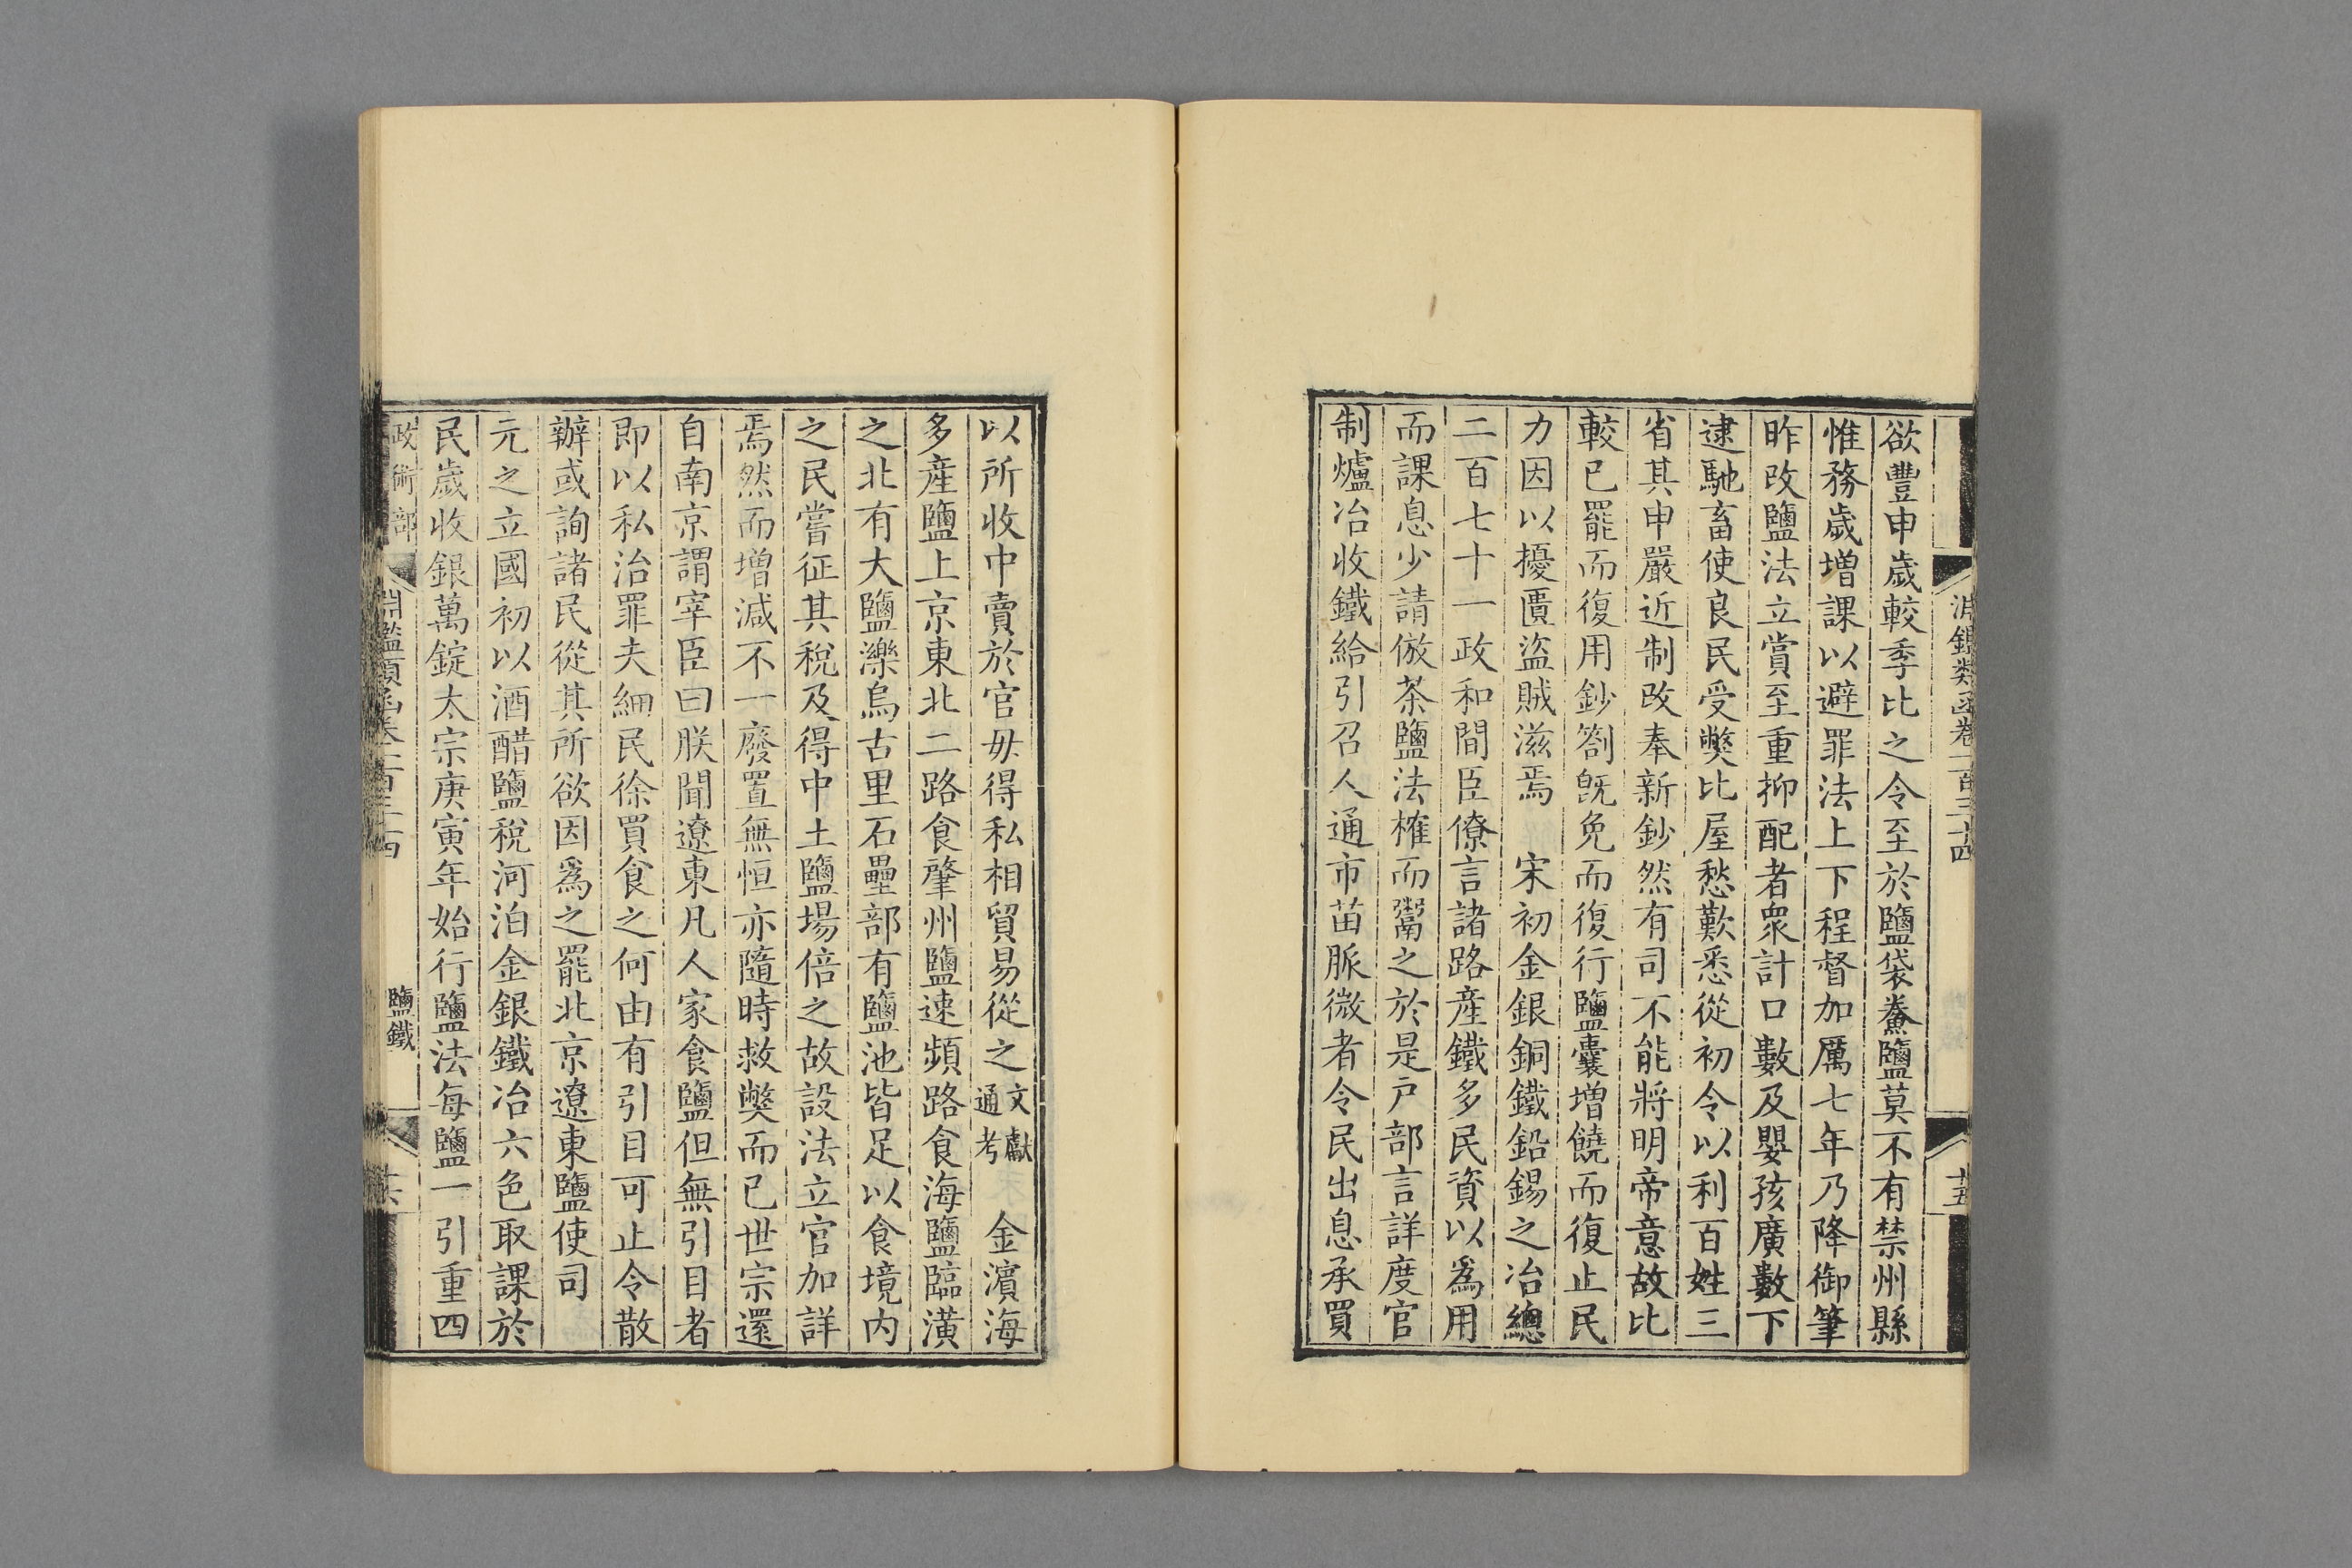 淵鑑類函卷一百三十四
十五
欲豐申歲較季比之令至於鹽袋鯗鹽莫不有禁州縣
惟務歲増課以避罪法上下程督加厲七年乃降御筆
昨改鹽法立賞至重抑配者衆計口數及嬰孩廣數下
逮馳畜使良民受弊比屋愁歎悉從初令以利百姓三
省其申嚴近制改奉新鈔然有司不能將明帝意故比
較已罷而復用鈔劄既免而復行鹽囊増饒而復止民
力因以擾匱盜賊滋焉　宋初金銀銅鐵鉛錫之冶總
二百七十一政和間臣僚言諸路産鐵多民資以爲用
而課息少請倣茶鹽法榷而鬻之於是户部言詳度官
制爐冶收鐵給引召人通市苗脈微者令民出息承買
以所收中賣於官毋得私相貿易從之文獻通考　金濱海
多産鹽上京東北二路食肇州鹽速頻路食海鹽臨潢
之北有大鹽濼烏古里石壘部有鹽池皆足以食境内
之民嘗征其稅及得中土鹽場倍之故設法立官加詳
焉然而増減不一廢置無恒亦隨時救弊而已世宗還
自南京謂宰臣曰朕聞遼東凡人家食鹽但無引目者
即以私治罪夫細民徐買食之何由有引目可止令散
辦或詢諸民從其所欲因爲之罷北京遼東鹽使司
元之立國初以酒醋鹽稅河泊金銀鐵冶六色取課於
民歲收銀萬錠太宗庚寅年始行鹽法每鹽一引重四
政術部
淵鑑類函卷一百三十四
鹽鐵
十六